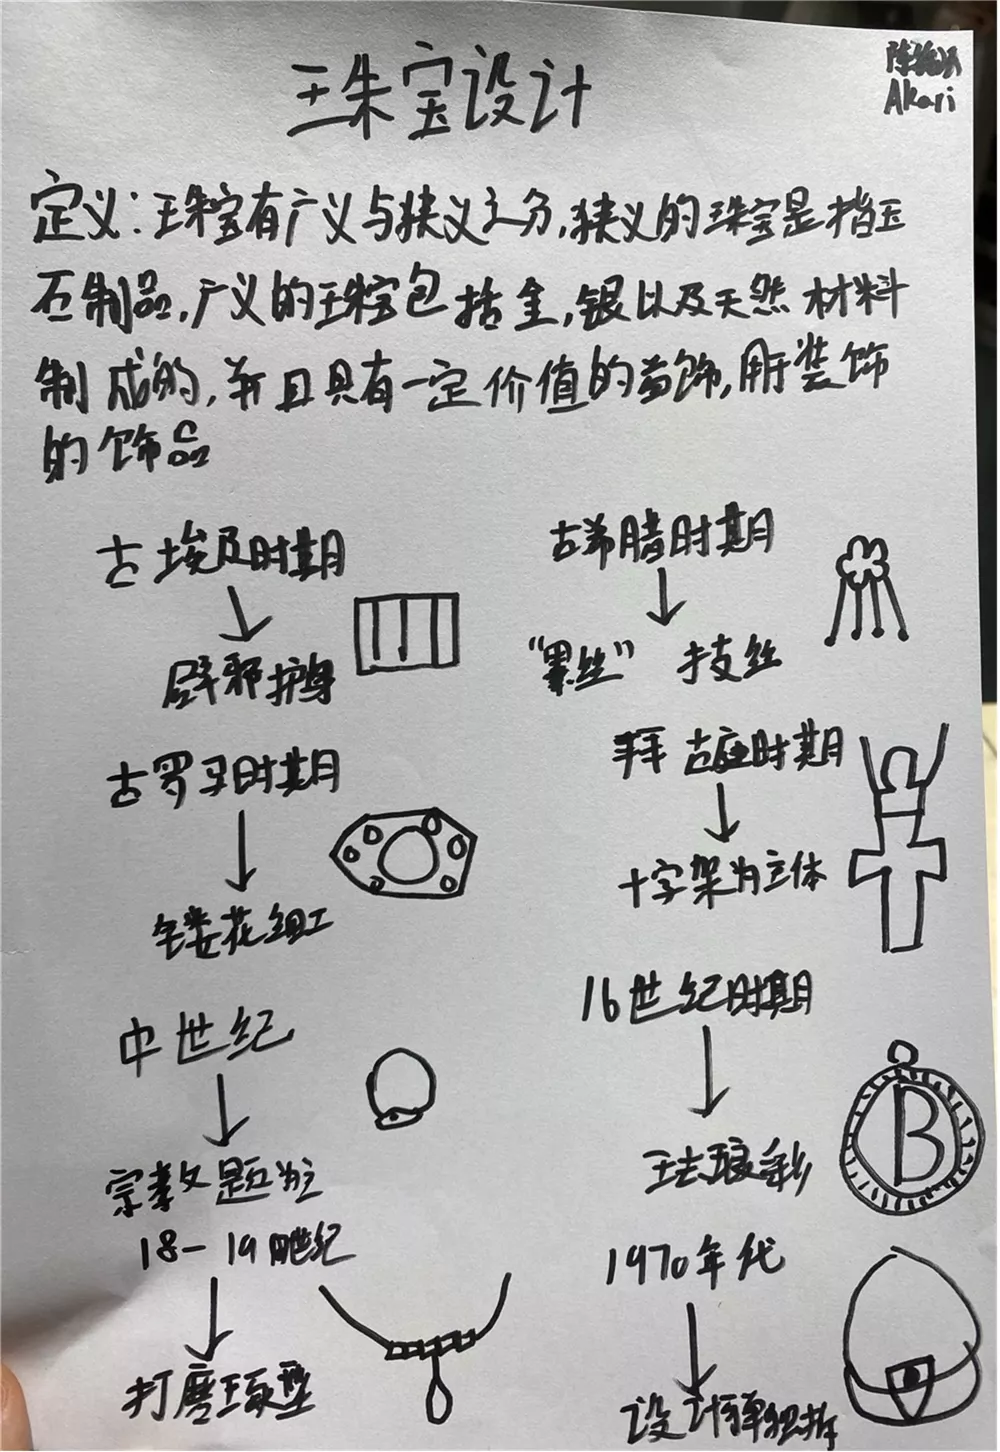 珠宝设计
Akari
定义:珠宝有广义与狭义之分,狭义的珠宝是指玉
石制品,广义的珠宝包括金,银以及天然材料
制成的,并且具有一定价值的首饰,用于装饰
的饰品
古埃及时期
辟邪护身
古希腊时期
"累丝" 技丝
古罗马时期
镂花细工
拜占庭时期
十字架为立体
中世纪
宗教题为主
16世纪时期
珐琅彩
B
18-19世纪
打磨琢型
1970年代
设计